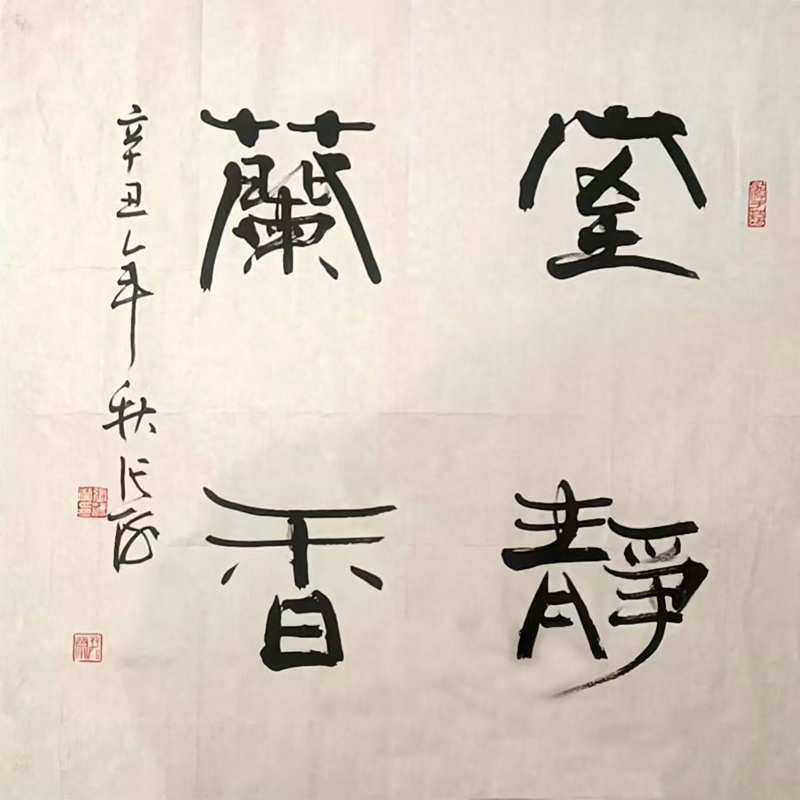 室靜
蘭香
辛丑年秋